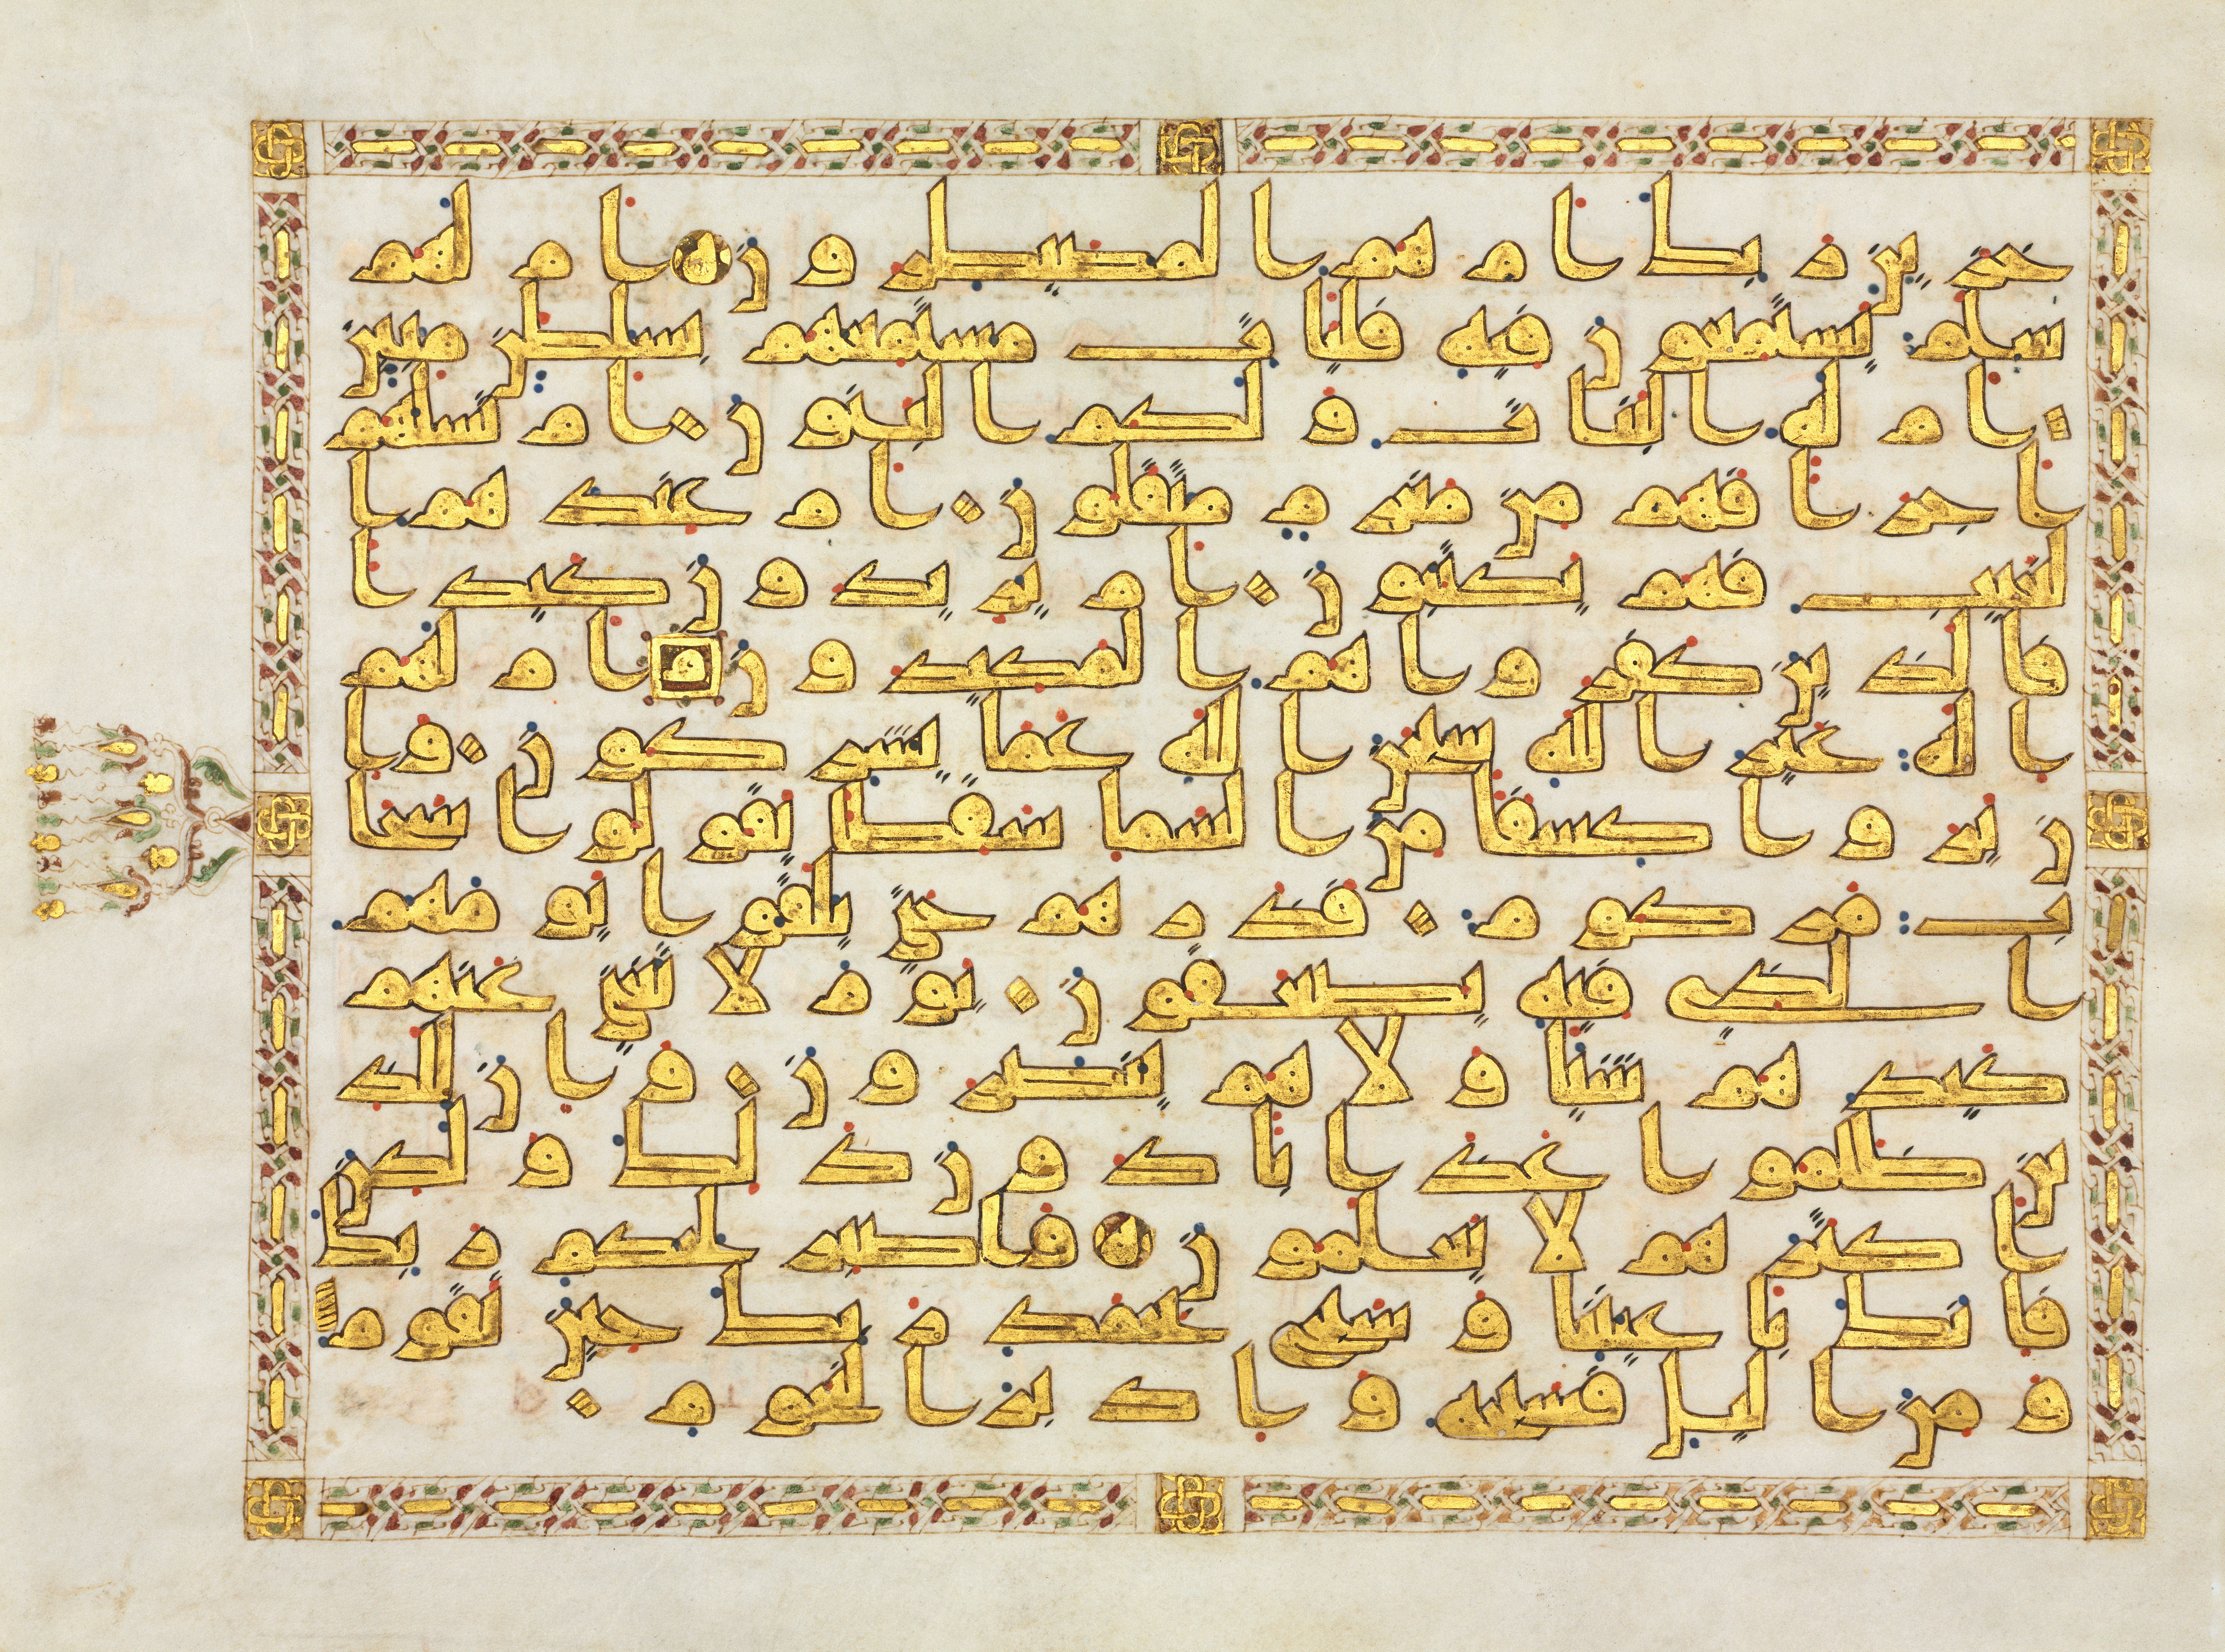 خزين ربك ام هم المصيطرون ام لهم
سلم يستمعون فيه فليات مستمعهم بسلطن مبين
ام له البنات ولكم البنون ام تسلهم
اجرا فهم من مغرم مثقلون ام عندهم ا
لغيب فهم يكتبون ام يريدون كيدا
فالذين كفروا هم المكيدون ام لهم
اله غير الله سبحن الله عما يشركون وا
ن يروا كسفا من السما سقطا يقولوا سحا
ب مركوم فذرهم حتي يلقوا يومهم
الذي فيه يصعقون يوم لا يغني عنهم
كيدهم شيا ولا هم ينصرون وان للذ
ين ظلموا عذابا دون ذلك ولكن
اكثرهم لا يعلمون فاصبر لحكم ربك
فانك باعيننا وسبح بحمد ربك حين تقوم
ومن اليل فسبحه وادبر النجوم